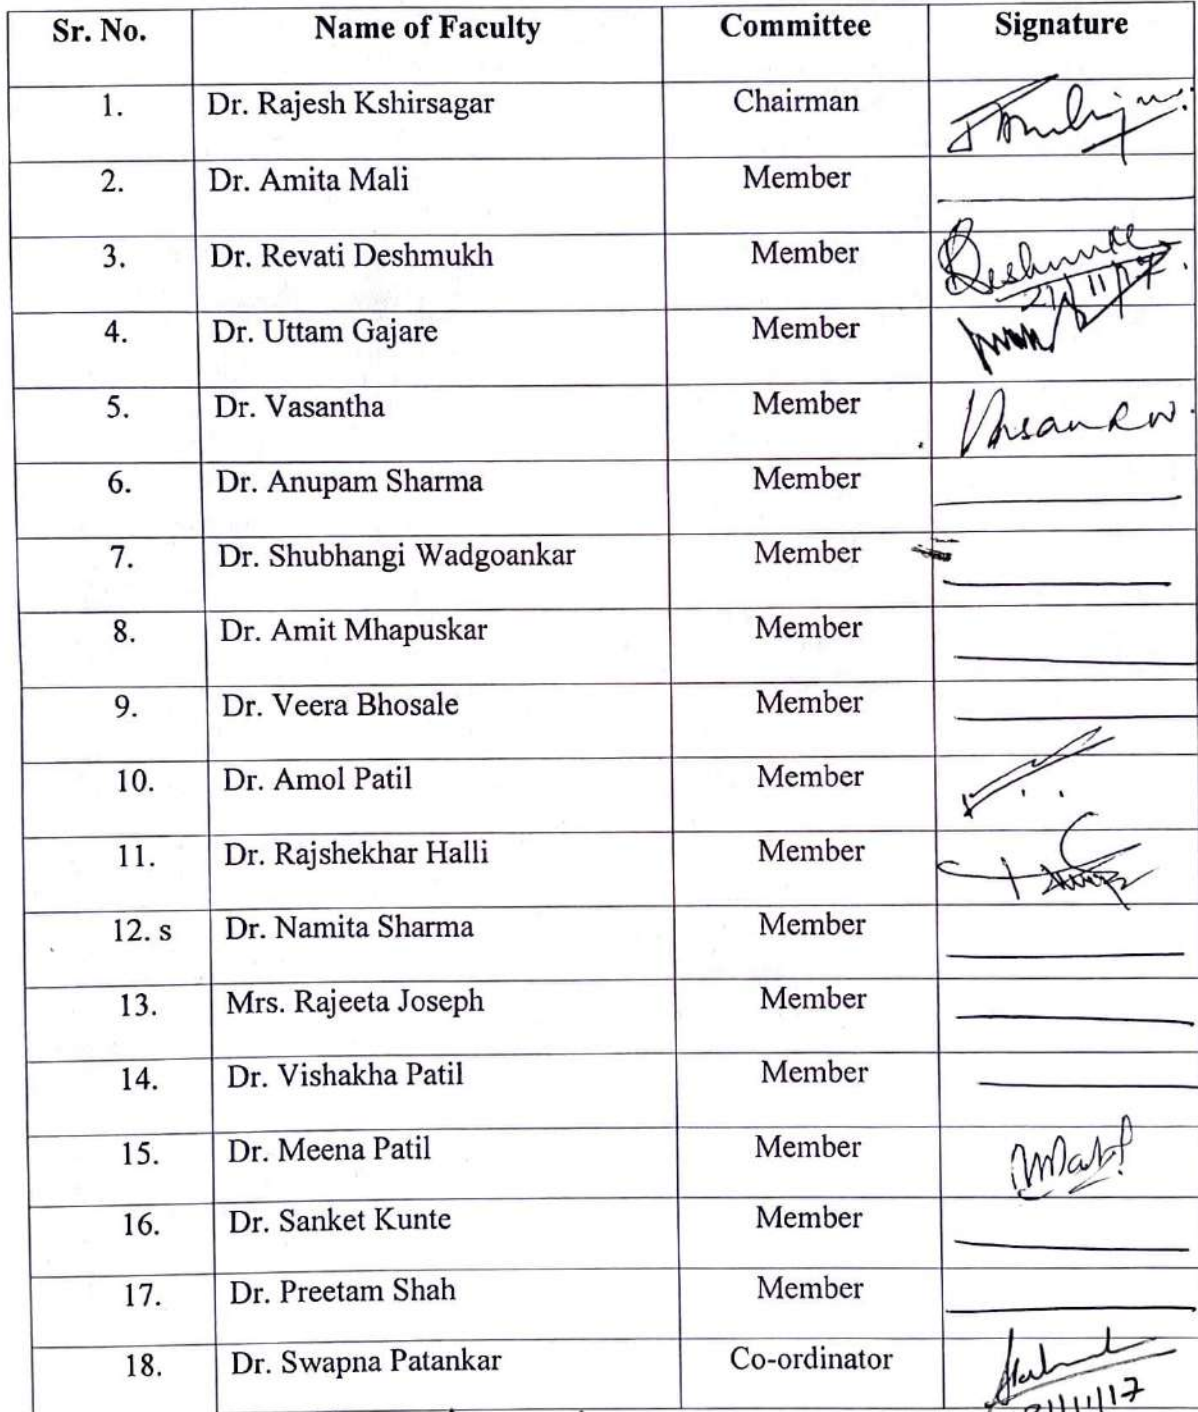 Sr. No. Name of Faculty Committee Signature
1. Dr. Rajesh Kshirsagar Chairman
2. Dr. Amita Mali Member
3. Dr. Revati Deshmukh Member Deshmukh
27/11/17.
4. Dr. Uttam Gajare Member
5. Dr. Vasantha Member
6. Dr. Anupam Sharma Member
7. Dr. Shubhangi Wadgoankar Member
8. Dr. Amit Mhapuskar Member
9. Dr. Veera Bhosale Member
10. Dr. Amol Patil Member
11. Dr. Rajshekhar Halli Member
12. s Dr. Namita Sharma Member
13. Mrs. Rajeeta Joseph Member
14. Dr. Vishakha Patil Member
15. Dr. Meena Patil Member
16. Dr. Sanket Kunte Member
17. Dr. Preetam Shah Member
18. Dr. Swapna Patankar Co-ordinator